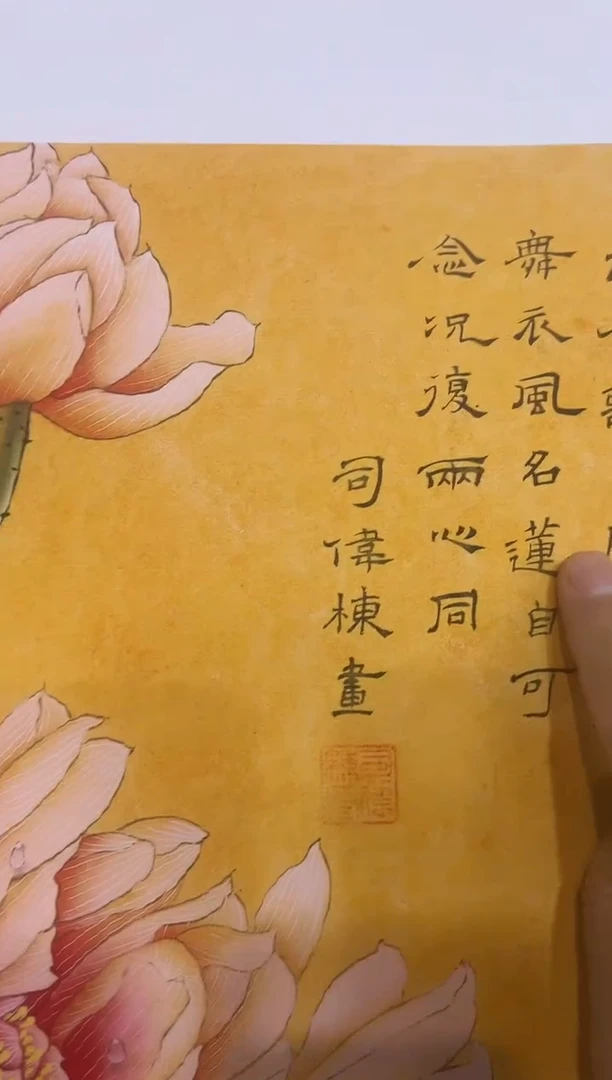 舞衣風名蓮自可
念況復兩心同
司偉棟畫